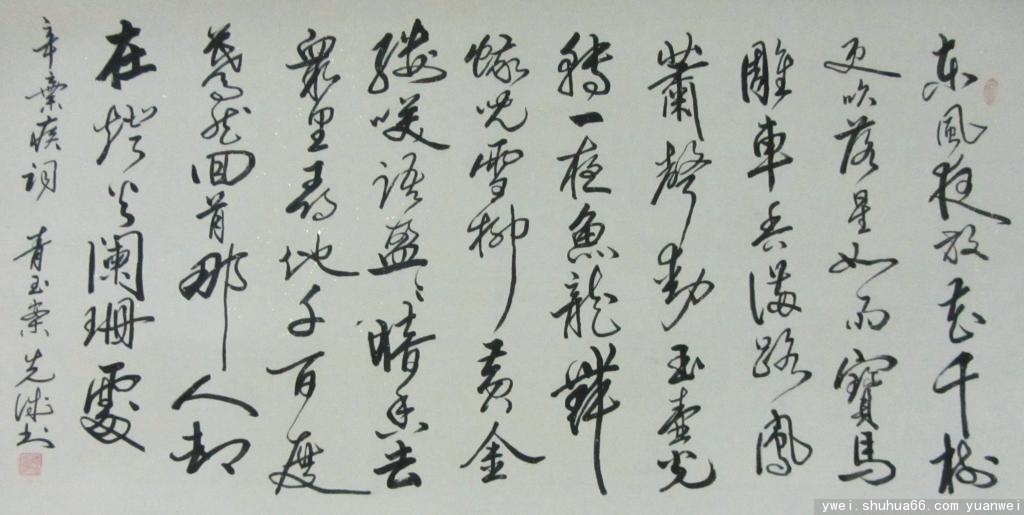 東風夜放花千樹
更吹落星如雨寶馬
雕車香滿路鳳
蕭聲動玉壺光
轉一夜魚龍舞
蛾兒雪柳黃金
縷笑語盈〻暗香去
眾里尋他千百度
驀然回首那人却
在燈火闌珊處
辛棄疾詞 青玉案 先书
ywei.shuhua66.com yuanwei